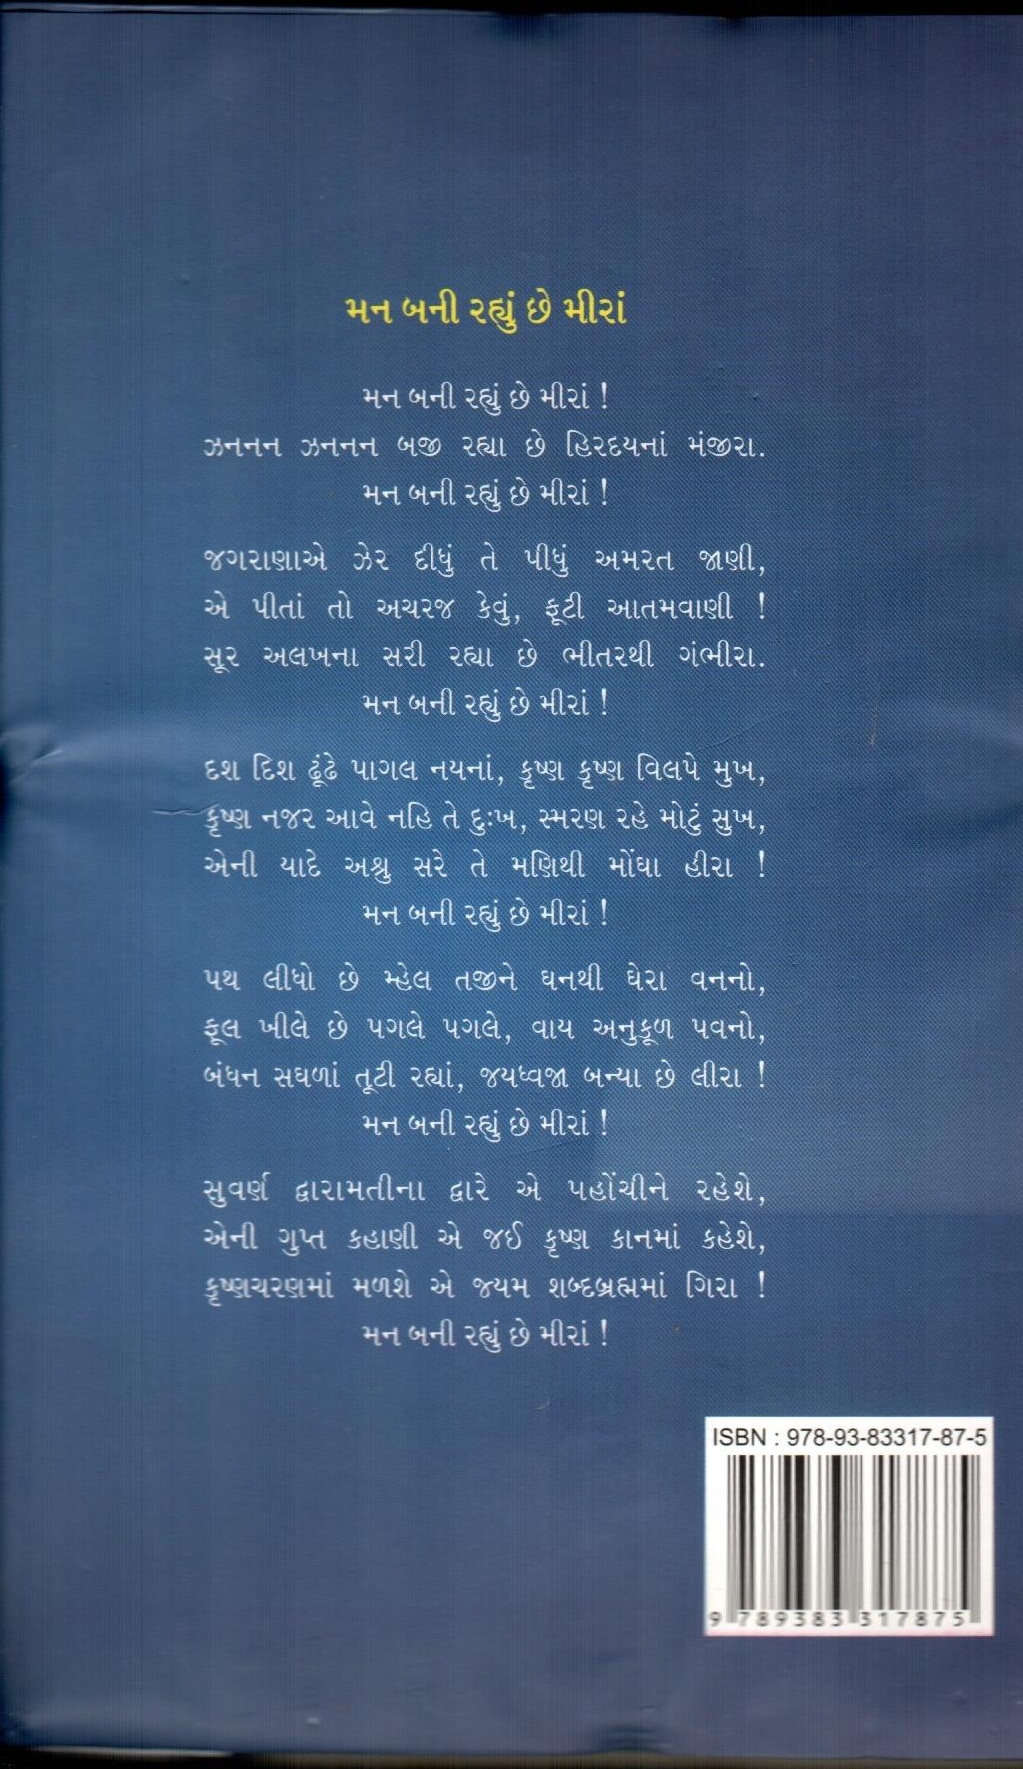 મન બની રહ્યું છે મીરાં
મન બની રહ્યું છે મીરાં !
ઝનનન ઝનનન બજી રહ્યા છે હિરદયનાં મંજીરા.
મન બની રહ્યું છે મીરાં !
જગરાણાએ ઝેર દીધું તે પીધું અમરત જાણી,
એ પીતાં તો અચરજ કેવું, ફૂટી આતમવાણી !
સૂર અલખના સરી રહ્યા છે ભીતરથી ગંભીરા.
મન બની રહ્યું છે મીરાં !
દશ દિશ ઢૂંઢે પાગલ નયનાં, કૃષ્ણ કૃષ્ણ વિલપે મુખ,
કૃષ્ણ નજર આવે નહિ તે દુઃખ, સ્મરણ રહે મોટું સુખ,
એની યાદે અશ્રુ સરે તે મણિથી મોંઘા હીરા !
મન બની રહ્યું છે મીરાં !
પથ લીધો છે મ્હેલ તજીને ઘનથી ઘેરા વનનો,
ફૂલ ખીલે છે પગલે પગલે, વાય અનુકૂળ પવનો,
બંધન સઘળાં તૂટી રહ્યાં, જયધ્વજા બન્યા છે લીરા !
મન બની રહ્યું છે મીરાં !
સુવર્ણ દ્વારામતીના દ્વારે એ પહોંચીને રહેશે,
એની ગુપ્ત કહાણી એ જઈ કૃષ્ણ કાનમાં કહેશે,
કૃષ્ણચરણમાં મળશે એ જ્યમ શબ્દબ્રહ્મમાં ગિરા !
મન બની રહ્યું છે મીરાં !
ISBN : 978-93-83317-87-5
9 789383 317875